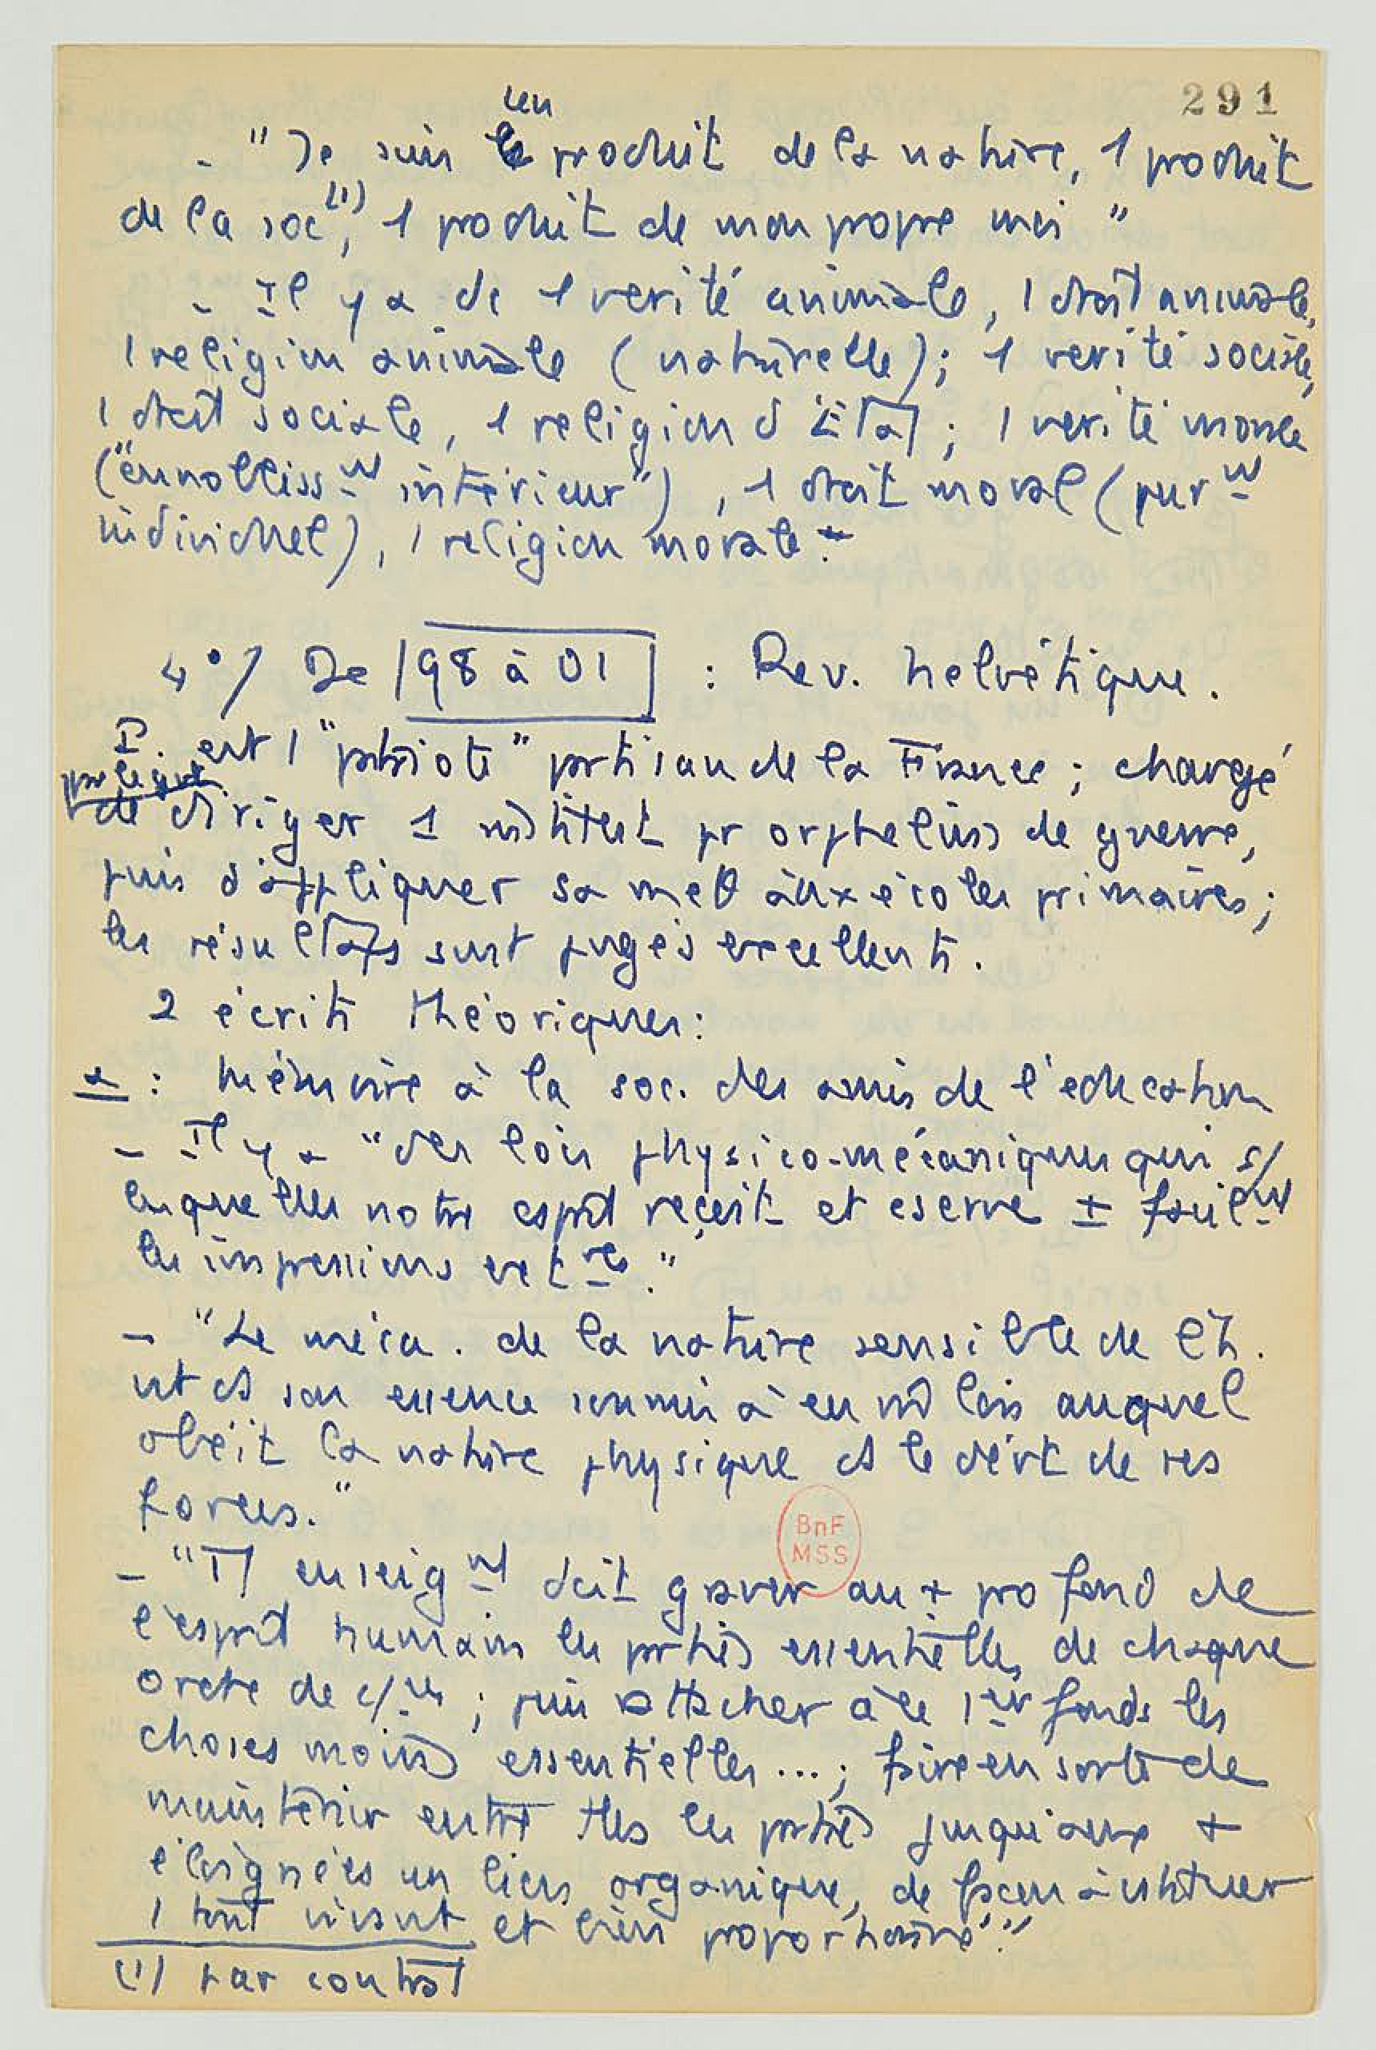 291
un
- "Je suis le produit de la nature, 1 produit
de la soc(1), 1 produit de mon propre moi"
- Il y a dc 1 verité animale, 1 droit animale,
1 religion animale (naturelle); 1 verité sociale,
1 droit sociale, 1 religion d'État; 1 verité morale
("ennobliss-nt intérieur"), 1 droit moral (pur-nt
individuel), 1 religion morale.
4°/ De |98 à 01| : Rev. helvétique.
P. est 1 "patriote" partisan de la France; chargé
de diriger 1 institut pr orphelins de guerre,
puis d'appliquer sa méth aux écoles primaires;
les résultats sont jugés excellents.
2 écrits théoriques:
α : Mémoire à la soc. des amis de l'éducation
- Il y a "des lois physico-mécaniques qui s/
lesquelles notre esprit reçoit et conserve ± facil-nt
les impressions ext-res."
- "Le méca. de la nature sensible de l'h.
est ds son essence soumis à en mm lois auquel
obéit la nature physique ds le dévt de ses
forces."
BnF
MSS
- "Tt enseig-nt doit graver au + profond de
l'esprit humain les parties essentielles de chaque
ordre de c/-ces ; puis rattacher à ce 1-er fonds les
choses moins essentielles...; faire en sorte de
maintenir entre ttes les parties jusqu'aux +
éloignées un lien organique, de façon à constituer
1 tout vivant et bien proportionné".
(1) par contrat